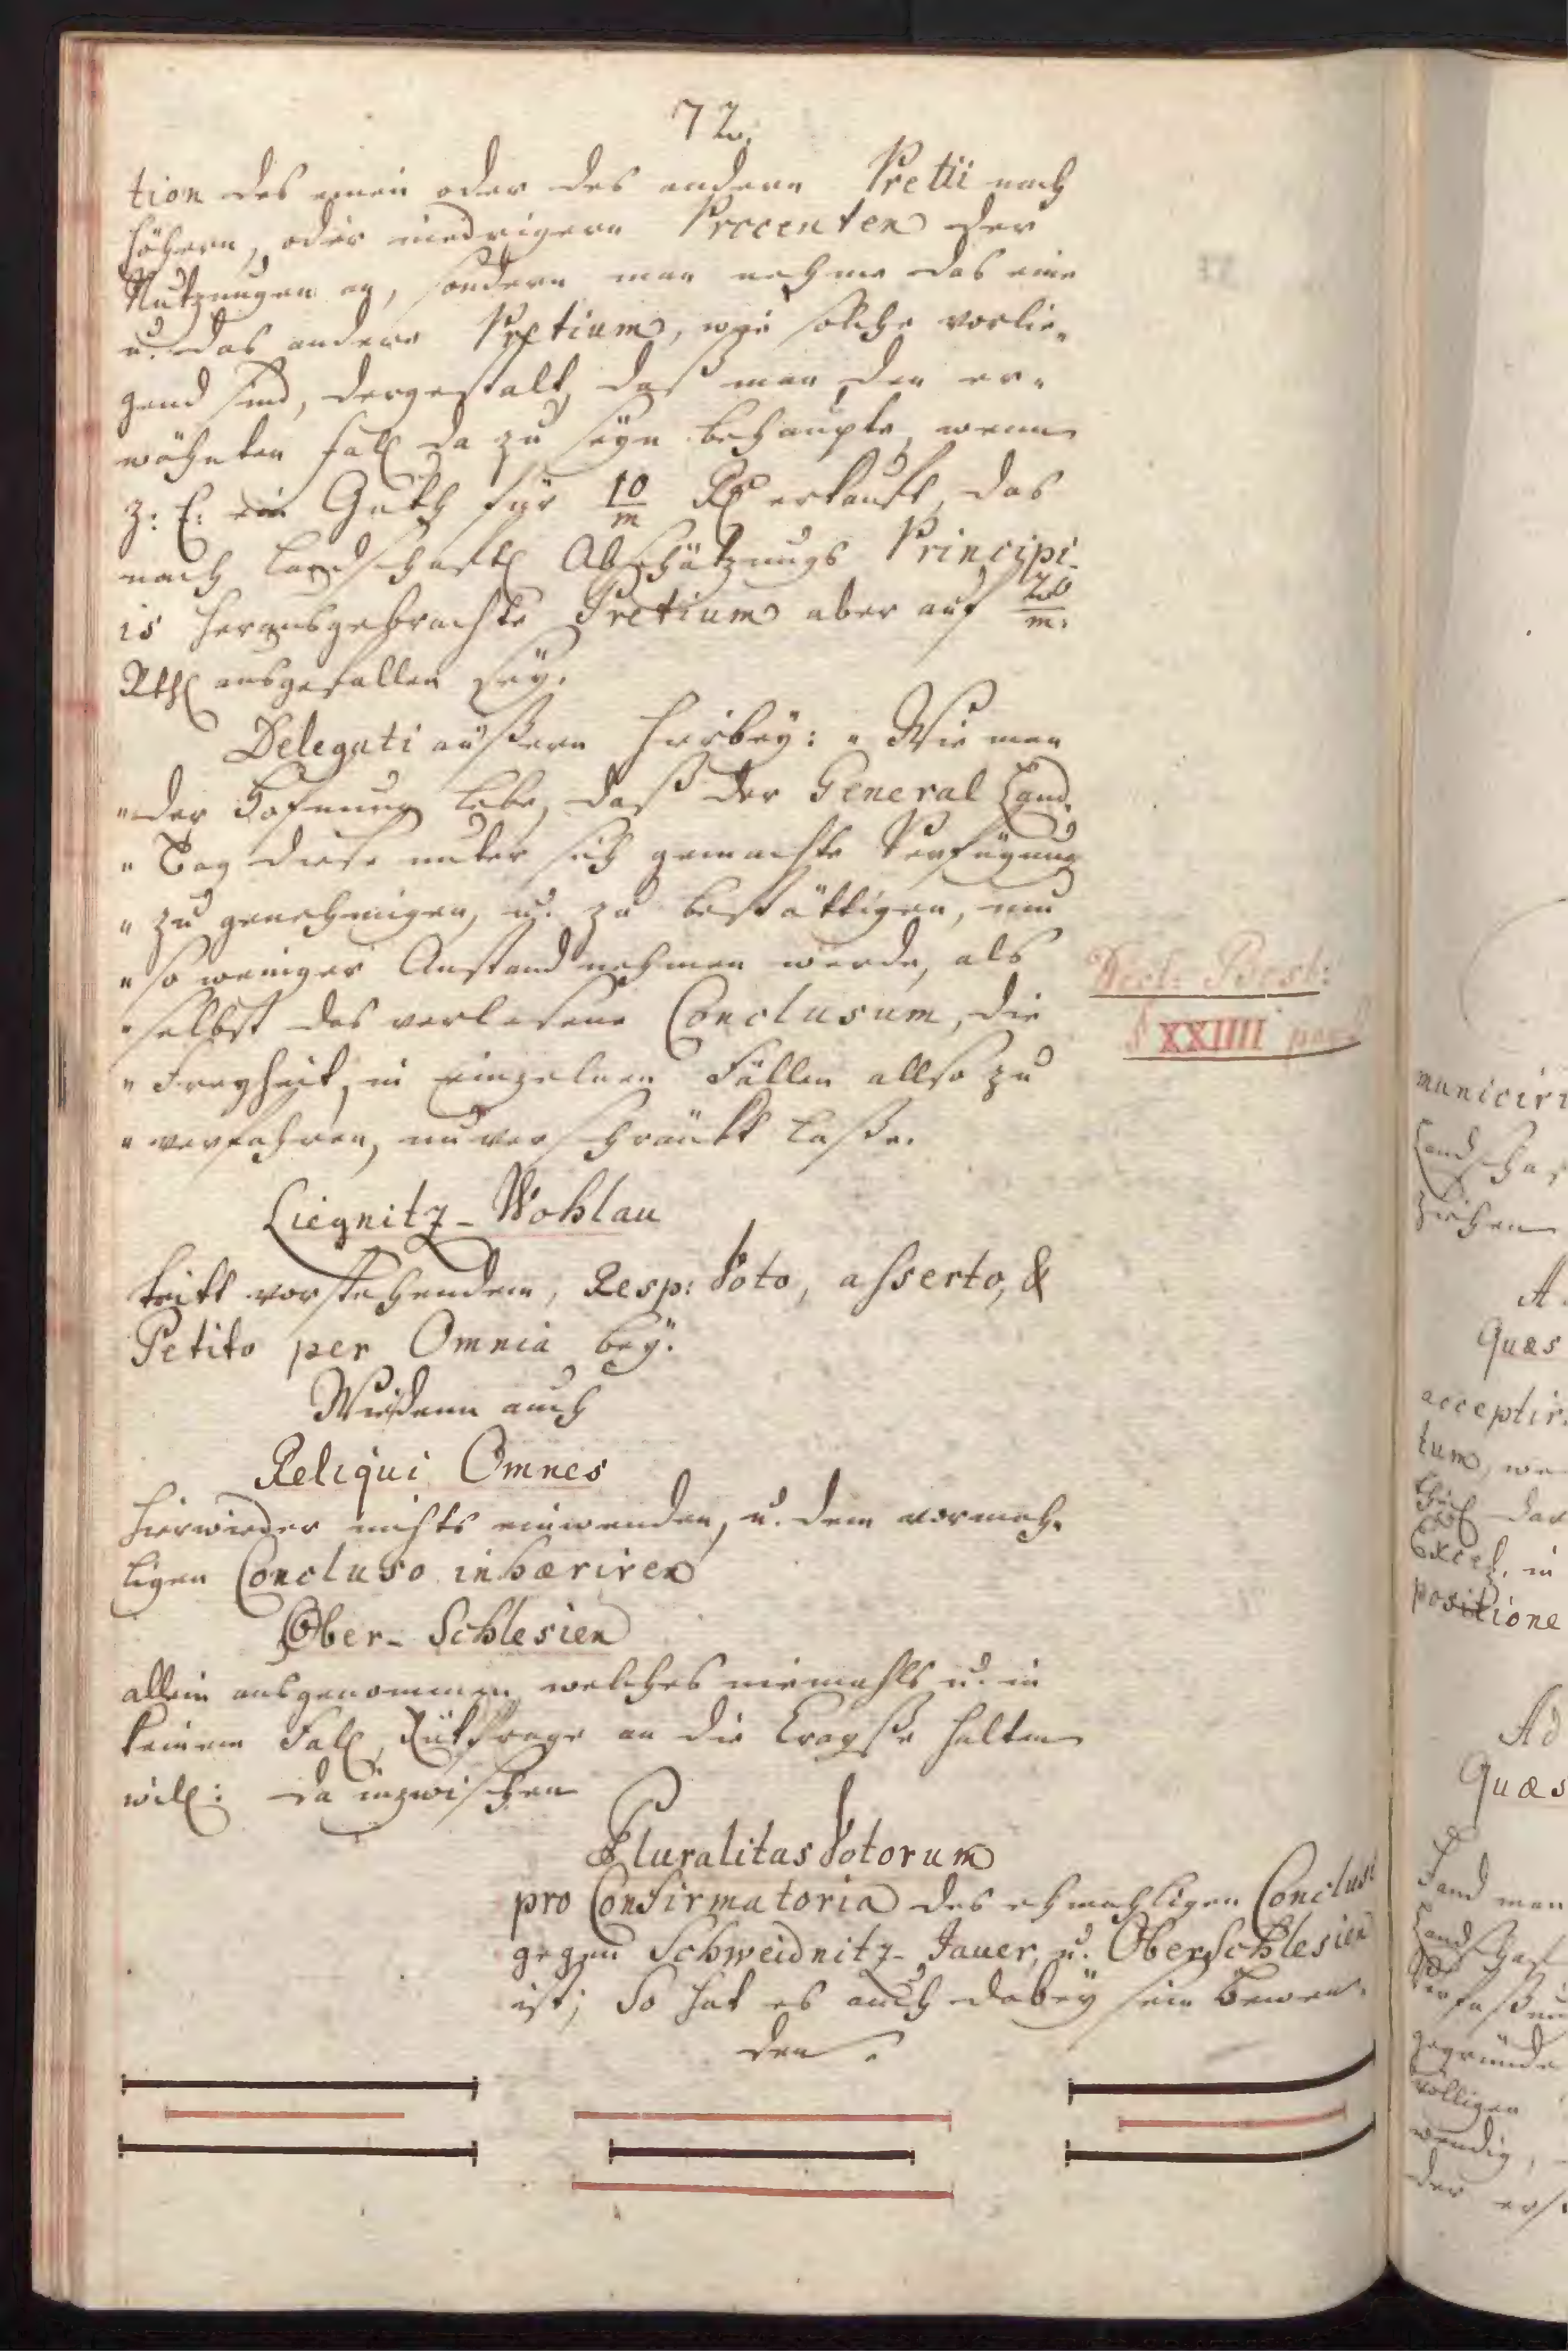 72.
tion des einen oder des andern Pretii nach
höhern, oder niedrigern Procenten der
Nutzungen an, sondern man nehme das eine
u. das andere Pretium, wie solche vorlie„
gend sind, dergestalt, daß man den er„
wähnten Fall da zu seyn behaupte, wenn
z: E: ein Guth für 10/m Rthl erkauft, das
nach Landschaftl Abschätzungs Principi„
is herausgebrachte Pretium aber auf 20/m:
Rthl ausgefallen seÿ.
Delegati äußern hierbeÿ: „ Wie man
„ der Hofnung lebe, daß der General Land„
„ Tag diese unter sich gemachte Verfügung
„ zu genehmigen, u. zu bestättigen, um
„ so weniger Anstand nehmen werde, als
„ selbst das verlesene Conclusum, die
„ Freyheit, in einzelnen Fällen allso zu
„ verfahren, unverschränkt laße.
Decl: Best:
§ XXIIII
Liegnitz-Wohlau
tritt vorstehendem, Resp: Voto, asserto, &
Petito per Omnia beÿ.
Wiedann auch
Reliqui Omnes
hierwieder nichts einwenden, u. dem vormah„
ligen Concluso inhæriren
Ober-Schlesien
allein ausgenommen, welches niemahls u. in
keinem Fall, Rükfrage an die Crayße halten
will: da inzwischen
Pluralitas Votorum
pro Confirmatoria des ehmahligen Conclusi
gegen Schweidnitz-Jauer, u. OberSchlesien
ist; So hat es auch dabeÿ sein Bewen„
den.
municiri
Landschaf
ziehen
A
Quæs
acceptir
tum, we
dar
Exced. in
positione
Ad
Quæs
Fand man
Landschaf
Verfaßun
gegründe
völligen
wendig,
der ers